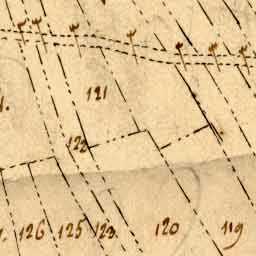 121
122
126 125 123 120 119